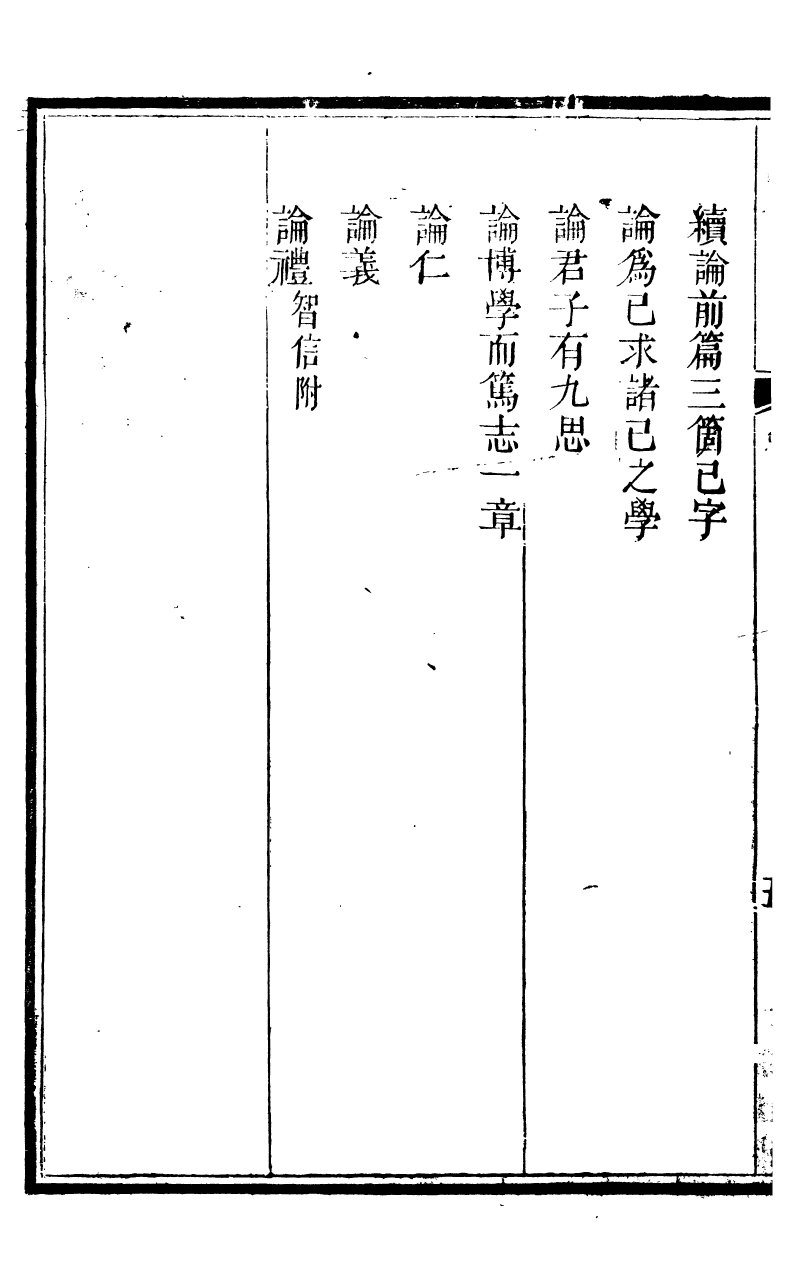 續論前篇三箇己字
論爲己求諸己之學
論君子有九思
論博學而篤志一章
論仁
論義
論禮智信附